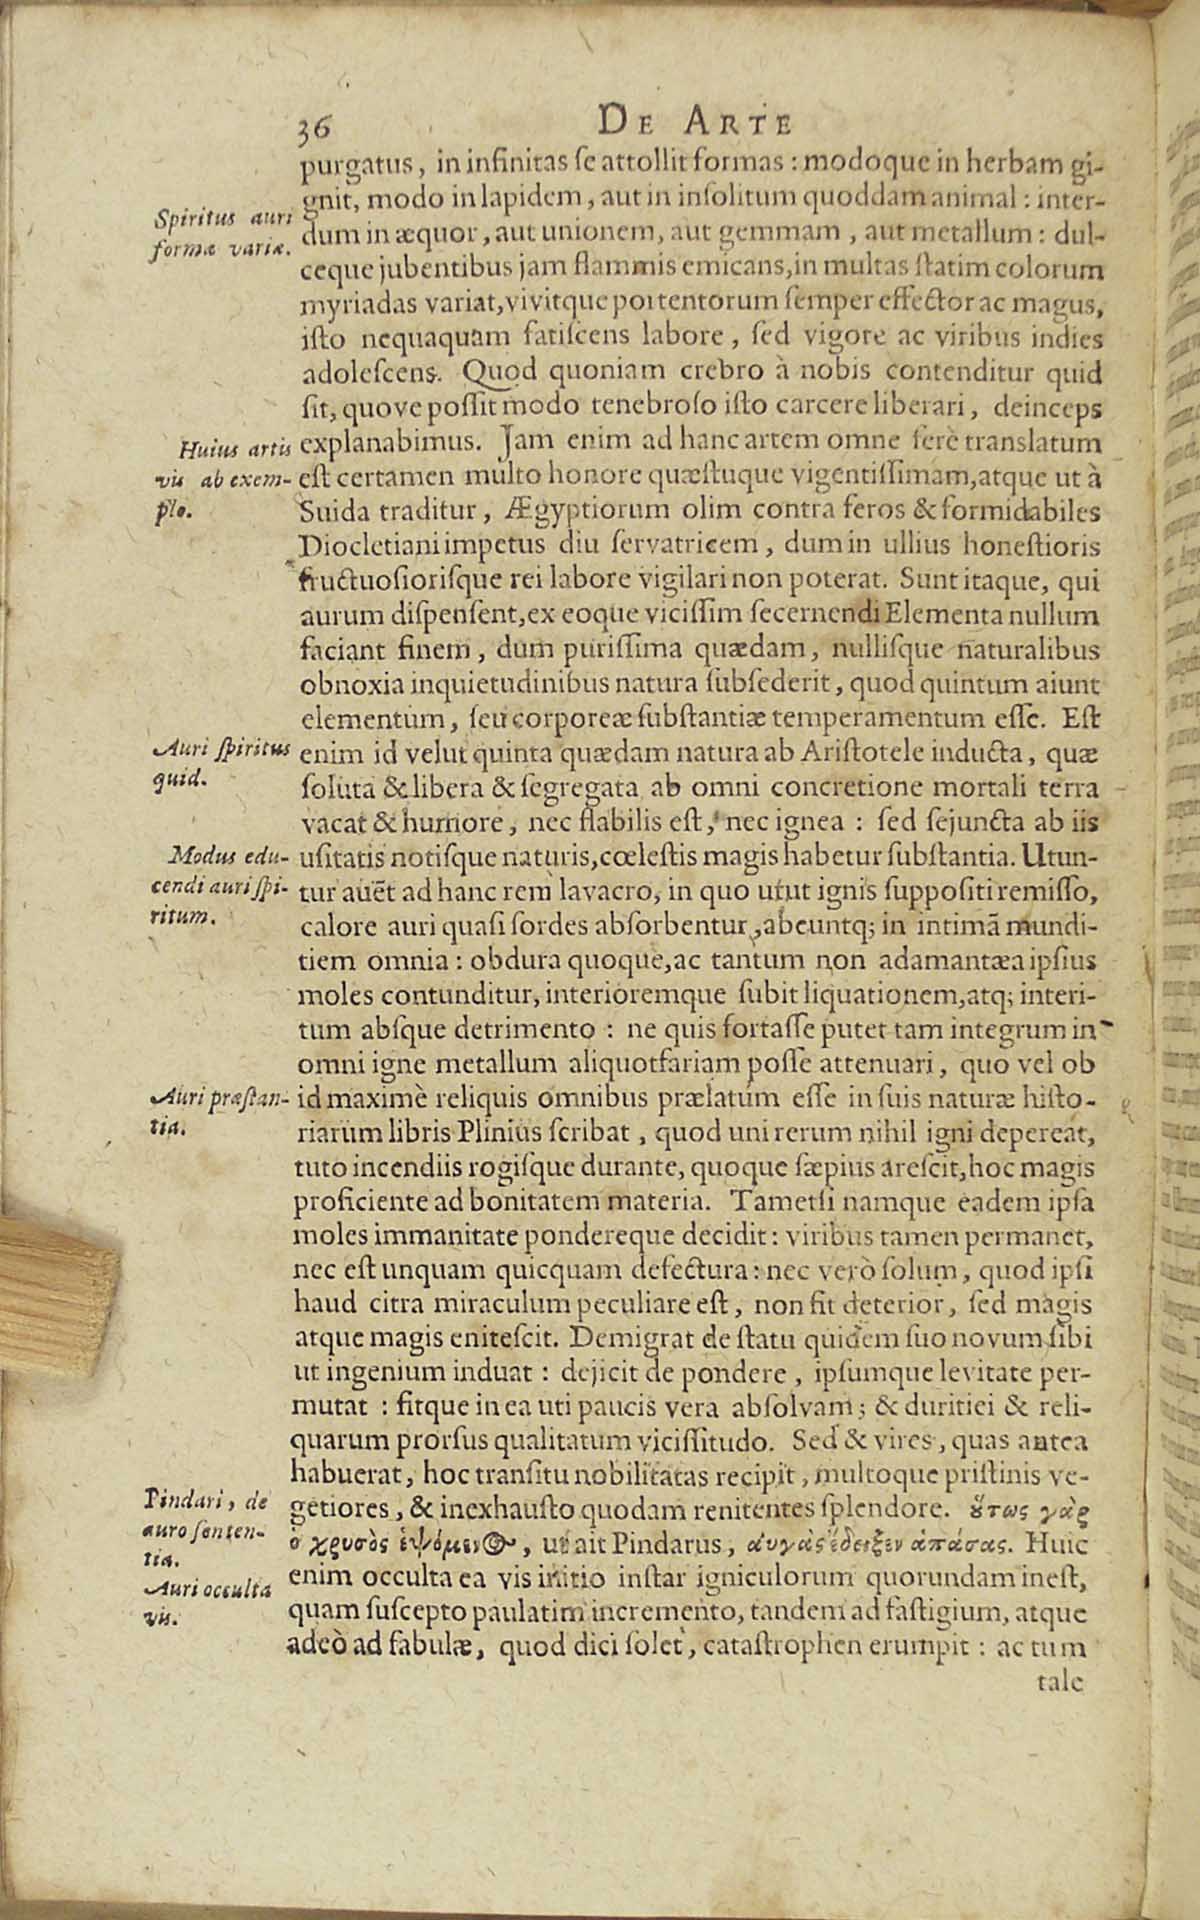 36 DE ARTE
purgatus, in infinitas ſe attollit formas : modoque in herbam gi-
gnit, modo in lapidem, aut in inſolitum quoddam animal : inter-
Spiritus auri
formæ variæ.
dum in æquor, aut unionem, aut gemmam, aut metallum : dul-
ceque jubentibus jam flammis emicans, in multas ſtatim colorum
myriadas variat, vivitque portentorum ſemper effector ac magus,
iſto nequaquam fatiſcens labore, ſed vigore ac viribus indies
adoleſcens. Quod quoniam crebro à nobis contenditur quid
ſit, quove poſſit modo tenebroſo iſto carcere liberari, deinceps
Huius artis
vis ab exem-
plo.
explanabimus. Jam enim ad hanc artem omne ferè translatum
eſt certamen multo honore quæſtuque vigentiſſimam, atque ut à
Suida traditur, Ægyptiorum olim contra feros & formidabiles
Diocletiani impetus diu ſervatricem, dum in ullius honeſtioris
fructuoſiorisque rei labore vigilari non poterat. Sunt itaque, qui
aurum diſpenſent, ex eoque viciſſim ſecernendi Elementa nullum
faciant finem, dum puriſſima quædam, nulliſque naturalibus
obnoxia inquietudinibus natura ſubſederit, quod quintum aiunt
elementum, ſeu corporeæ ſubſtantiæ temperamentum eſſe. Eſt
Auri ſpiritus
quid.
enim id velut quinta quædam natura ab Ariſtotele inducta, quæ
ſoluta & libera & ſegregata ab omni concretione mortali terra
vacat & humore, nec flabilis eſt, nec ignea : ſed ſejuncta ab iis
Modus edu-
cendi auri ſpi-
ritum.
uſitatis notiſque naturis, cœleſtis magis habetur ſubſtantia. Utun-
tur auẽt ad hanc rem lavacro, in quo utut ignis ſuppoſiti remiſſo,
calore auri quaſi ſordes abſorbentur, abeuntq; in intimã mundi-
tiem omnia : obdura quoque, ac tantum non adamantæa ipſius
moles contunditur, interioremque ſubit liquationem, atq; interi-
tum abſque detrimento : ne quis fortaſſe putet tam integrum in
omni igne metallum aliquotfariam poſſe attenuari, quo vel ob
Auri præſtan-
tia.
id maximè reliquis omnibus prælatum eſſe in ſuis naturæ hiſto-
riarum libris Plinius ſcribat, quod uni rerum nihil igni depereat,
tuto incendiis rogiſque durante, quoque ſæpius areſcit, hoc magis
proficiente ad bonitatem materia. Tametſi namque eadem ipſa
moles immanitate pondereque decidit : viribus tamen permanet,
nec eſt unquam quicquam defectura : nec verò ſolum, quod ipſi
haud citra miraculum peculiare eſt, non fit deterior, ſed magis
atque magis eniteſcit. Demigrat de ſtatu quidem ſuo novum ſibi
ut ingenium induat : dejicit de pondere, ipſumque levitate per-
mutat : fitque in ea uti paucis vera abſolvam; & duritiei & reli-
quarum prorſus qualitatum viciſſitudo. Sed & vires, quas antea
habuerat, hoc tranſitu nobilitatas recipit, multoque priſtinis ve-
Pindari, de
auro ſenten-
tia.
getiores, & inexhauſto quodam renitentes ſplendore. ὅτως γὰρ
ὁ χρυσὸς ἑψόμενος, ut ait Pindarus, αὐγὰς ἔδειξεν ἁπάσας. Huic
Auri occulta
vis.
enim occulta ea vis initio inſtar igniculorum quorundam ineſt,
quam ſuſcepto paulatim incremento, tandem ad faſtigium, atque
adeò ad fabulæ, quod dici ſolet, cataſtrophen erumpit : ac tum
tale